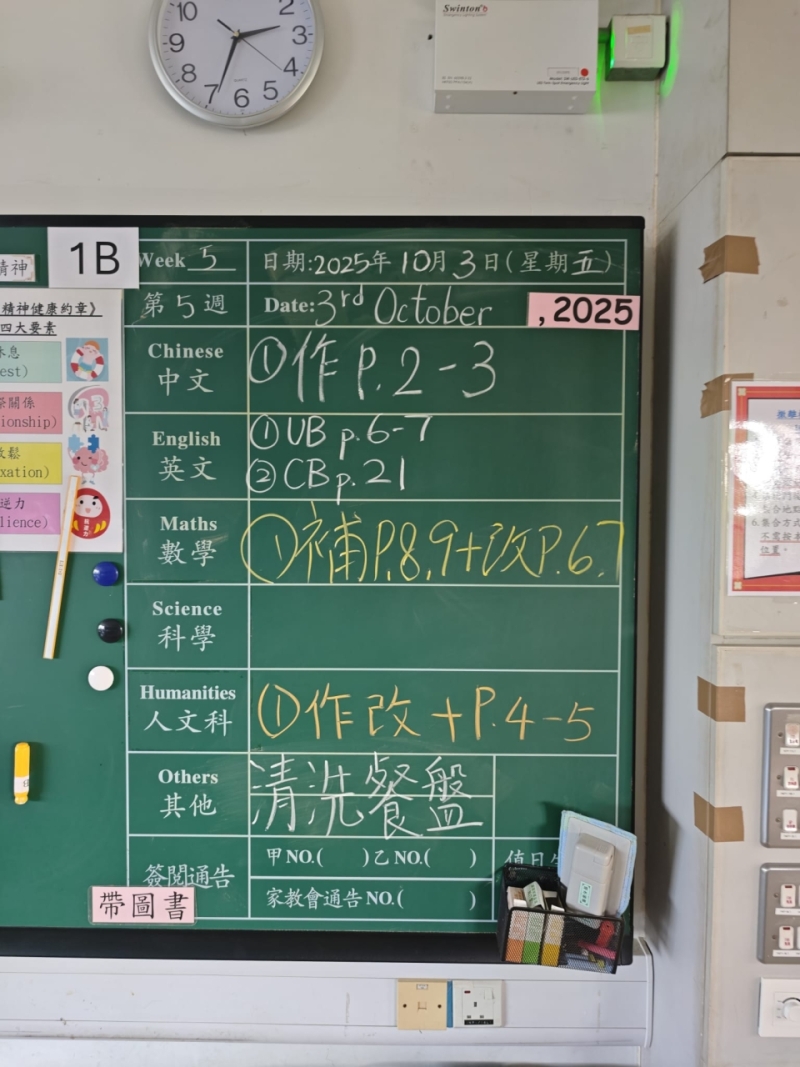 10 2
9 3
8 4
7 6 5
QUARTZ
Swinton
Emergency Lighting System
精神
1B
Week 5
日期:2025年10月3日(星期五)
精神健康約章》
四大要素
第5週
Date: 3rd October , 2025
休息
est)
Chinese
中文
①作P.2-3
關係
ionship)
English
英文
①UB p.6-7
②CB p.21
放鬆
xation)
Maths
數學
①補P.8,9+改P.6,7
逆力
lience)
Science
科學
Humanities
人文科
①作改+P.4-5
Others
其他
清洗餐盤
簽閱通告
甲NO.( )乙NO.( )
值日生
家教會通告NO.( )
帶圖書
6.集合方式
不需按
位置。